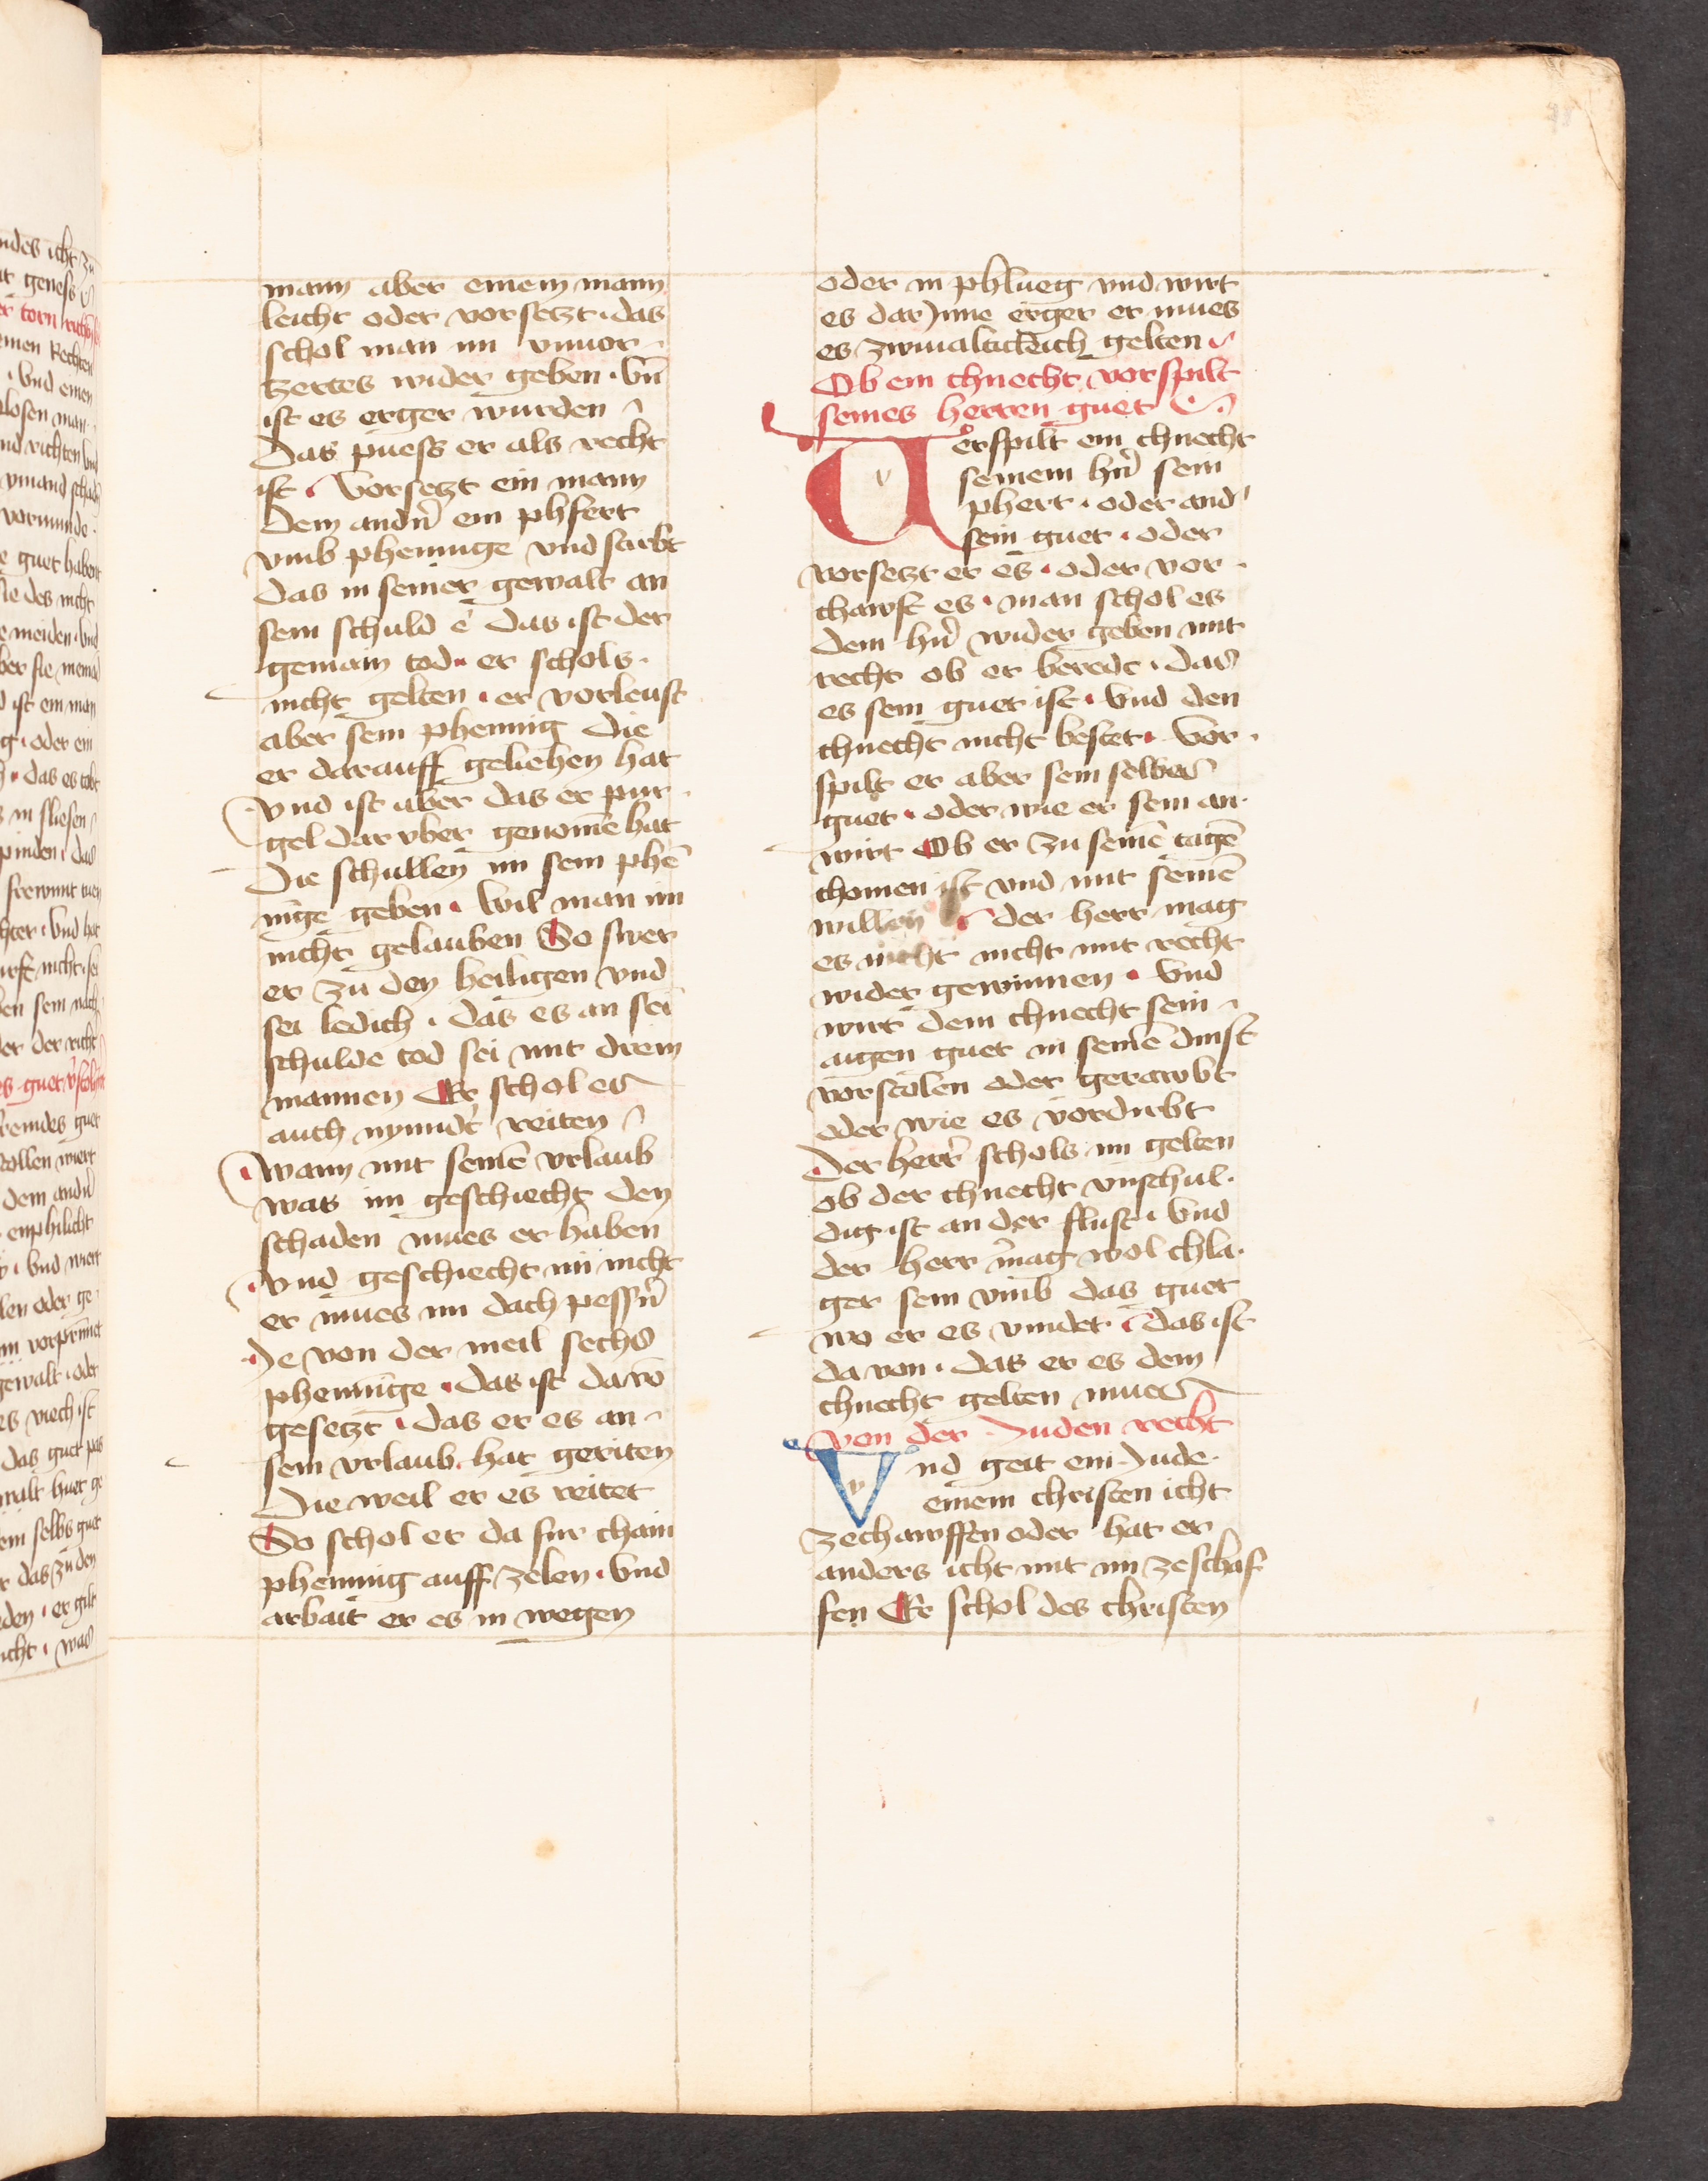 mann aber einem mann
leicht oder vorsetzt · das
schol man im vnuor-
tzertes wider geben · Vn̄
ist es erger wurden
Das puess er als recht
ist · Vorsetzt ein mann
Dem andn̄ ein phfert
vmb phenninge vnd stirbt
das in seiner gewalt an
sein schuld ē das ist der
gemain tod · er schols
nicht gelten · er vorleust
aber sein phennig die
er darauff gelichen hat
Vnd ist aber das er pur-
gel dar vber genomē hat
Die schullen im sein phē
nige geben · Wil man im
nicht gelauben So swer
er zu den heiligen vnd
sei ledich · das es an sei
schulde tod sei mit drein
mannen Er schol es
auch nynndt reiten
Wann mit seinē vrlaub
was im geschiecht den
schaden mues er haben
Vnd geschiecht im nicht
er mues im dach pessn̄
Je von der meil sechs
phenninge · das ist da vō
gesetzt · das er es an
sein vrlaub hat geriten
Die weil er es reitet
So schol er da fur chain
phenning auff zelen · Vnd
arbait er es in wegen
oder in phlueg vnd wirt
es dar Jnne erger er mues
es zwiualticleich gelten
Ob ein chnecht vorspilt
seines herren guet
Verspilt ein chnecht
seinem hn̄ sein
phert · oder and
sein guet · oder
vorsetzt er es · oder vor-
chawft es · man schol es
dem hn̄ wider geben mit
recht ob er berede · das
es sein guet ist · Vnd den
chnecht nicht bestet · Vor-
spilt er aber sein selbers
guet · oder wie er sein an-
wirt Ob er zu seinē tagē
chomen ist vnd mit seinē
willen der herr mag
es nicht nicht mit recht
wider gewinnen · Vnd
wirt dem chnecht sein
aigen guet in seinē dinst
vorstolen oder gerawbt
oder wie es vordirbt
Der herr schols im gelten
ob der chnecht vnschul-
dig ist an der flust · Vnd
der herr mag wol chla-
ger sein vmb das guet
wo er es vindet · das ist
da von · das er es dem
chnecht gelten mues
Von der Juden recht
Vnd geit ein Jude
einem christen icht
ze chawffen oder hat er
anders icht mit im ze schaf
fen Er schol des christen